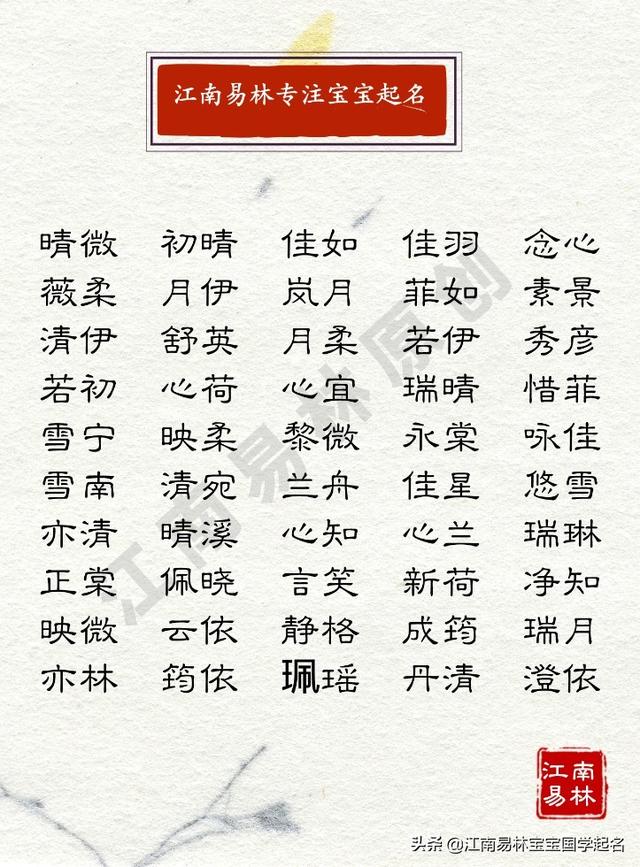 江南易林专注宝宝起名
晴微 初晴 佳如 佳羽 念心
薇柔 月伊 岚月 菲如 素景
清伊 舒英 月柔 若伊 秀彦
若初 心荷 心宜 瑞晴 惜菲
雪宁 映柔 黎微 永棠 咏佳
雪南 清宛 兰舟 佳星 悠雪
亦清 晴溪 心知 心兰 瑞琳
正棠 佩晓 言笑 新荷 净知
映微 云依 静格 成筠 瑞月
亦林 筠依 珮瑶 丹清 澄依
江南易林原创
江南
易林
头条 @江南易林宝宝国学起名